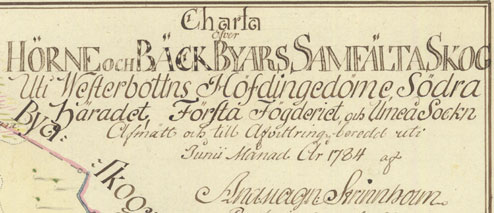 Charta
öfver
HÖRNE OCH BÄCK BYARS, SAMFÄLTA SKOG
Uti Westerbottns Höfdingedöme, Södra
häradet, Första Fögderiet, och Umeå Sockn
Afmätt och till Afvittring beredet uti
Junii Månad Åhr 1784 af
Bya
Skog